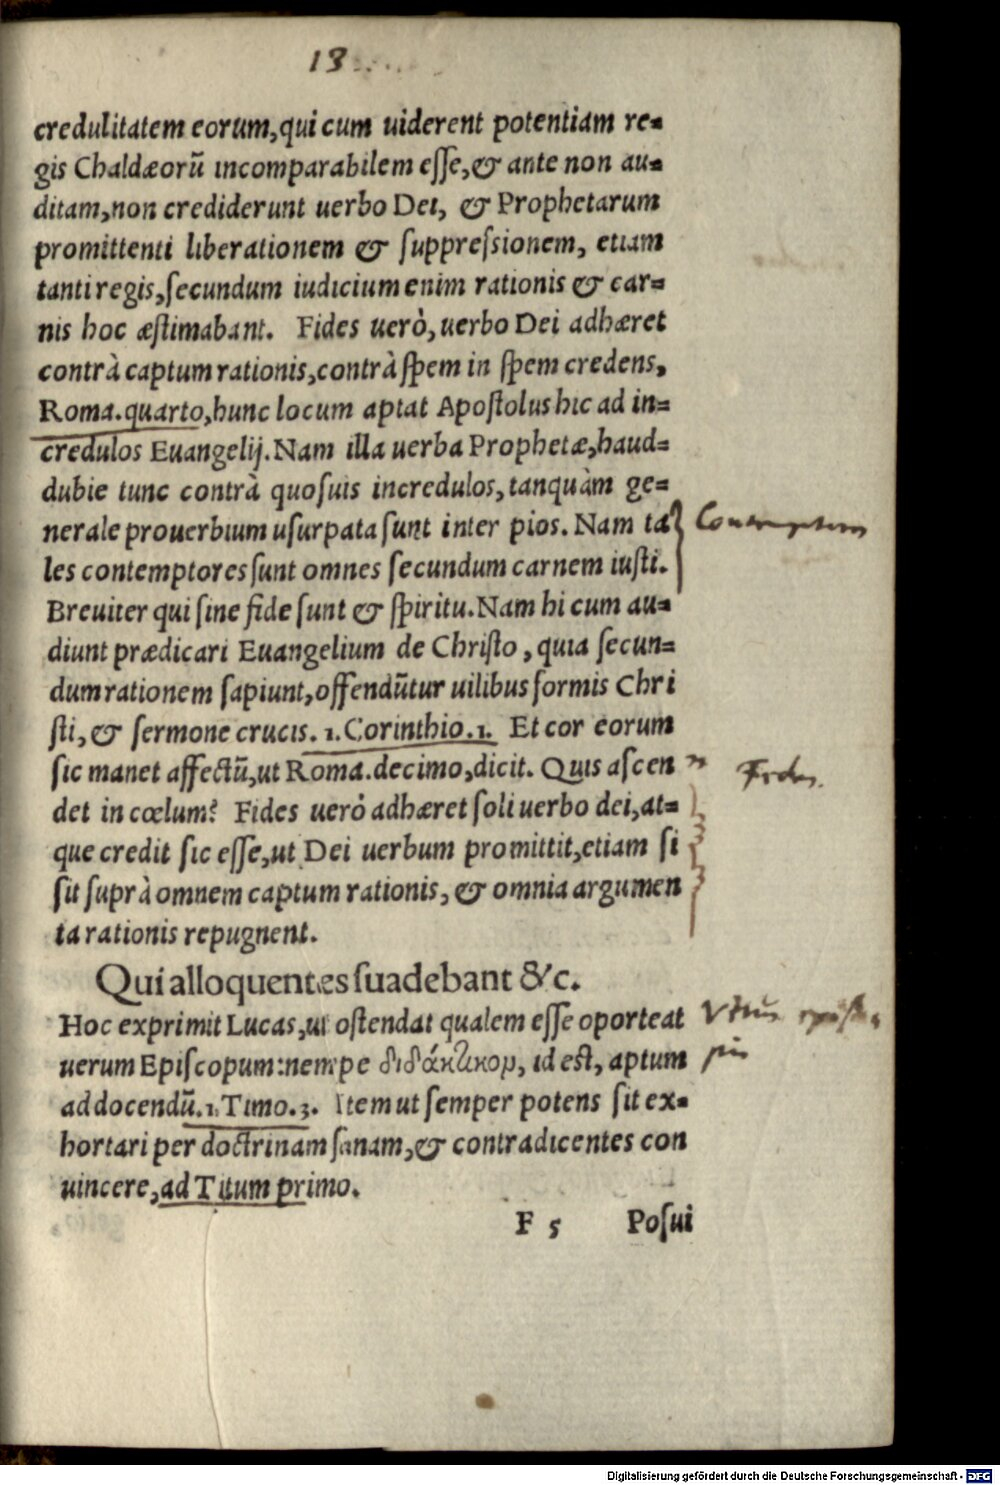 13
credulitatem eorum, qui cum uiderent potentiam re=
gis Chaldæorũ incomparabilem esse, & ante non au=
ditam, non crediderunt uerbo Dei, & Prophetarum
promittenti liberationem & suppressionem, etiam
tanti regis, secundum iudicium enim rationis & car=
nis hoc æstimabant. Fides uerò, uerbo Dei adhæret
contrà captum rationis, contrà spem in spem credens,
Roma. quarto, hunc locum aptat Apostolus hic ad in=
credulos Euangelij. Nam illa uerba Prophetæ, haud=
dubie tunc contrà quosuis incredulos, tanquàm ge=
nerale prouerbium usurpata sunt inter pios. Nam ta
les contemptores sunt omnes secundum carnem iusti.
Breuiter qui sine fide sunt & spiritu. Nam hi cum au=
diunt prædicari Euangelium de Christo, quia secun=
dum rationem sapiunt, offendũtur uilibus formis Chri
sti, & sermone crucis. 1. Corinthio. 1. Et cor eorum
sic manet affectũ, ut Roma. decimo, dicit. Quis ascen
det in cœlum? Fides uerò adhæret soli uerbo dei, at=
que credit sic esse, ut Dei uerbum promittit, etiam si
sit suprà omnem captum rationis, & omnia argumen
ta rationis repugnent.
Qui alloquentes suadebant &c.
Hoc exprimit Lucas, ut ostendat qualem esse oporteat
uerum Episcopum: nempe διδάκτικομ, id est, aptum
ad docendũ. 1. Timo. 3. Item ut semper potens sit ex=
hortari per doctrinam sanam, & contradicentes con
uincere, ad Titum primo.
F 5 Posui
Fides.
Digitalisierung gefördert durch die Deutsche Forschungsgemeinschaft - DFG